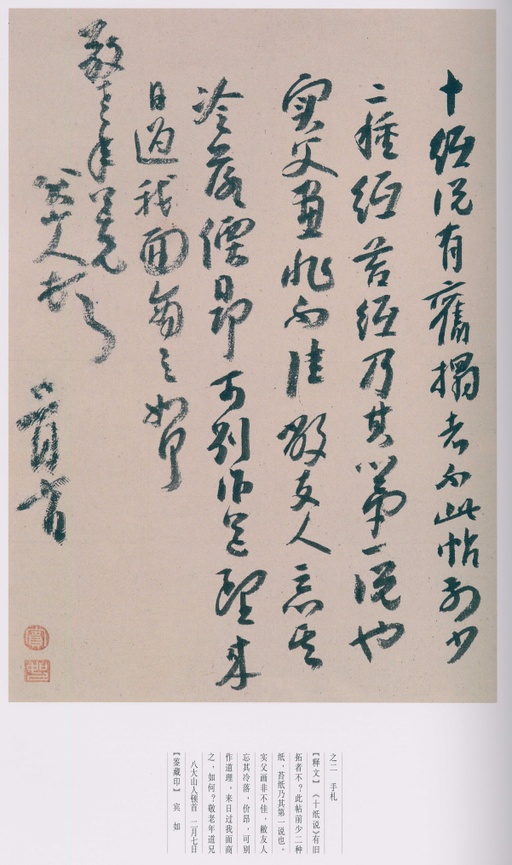 十紙説有舊搨者不此帖前少
二種紙苔紙乃其第一説也
實父畫非不佳敝友人忘其
冷落價昂可别作道理来
日過我面商之如何
敬老年道兄
八大山人頓首
之二 手札
【释文】《十纸说》有旧
拓者不？此帖前少二种
纸，苔纸乃其第一说也。
实父画非不佳，敝友人
忘其冷落，价昂，可别
作道理，来日过我面商
之，如何？敬老年道兄
八大山人顿首 二月七日
【鉴藏印】 宾 如